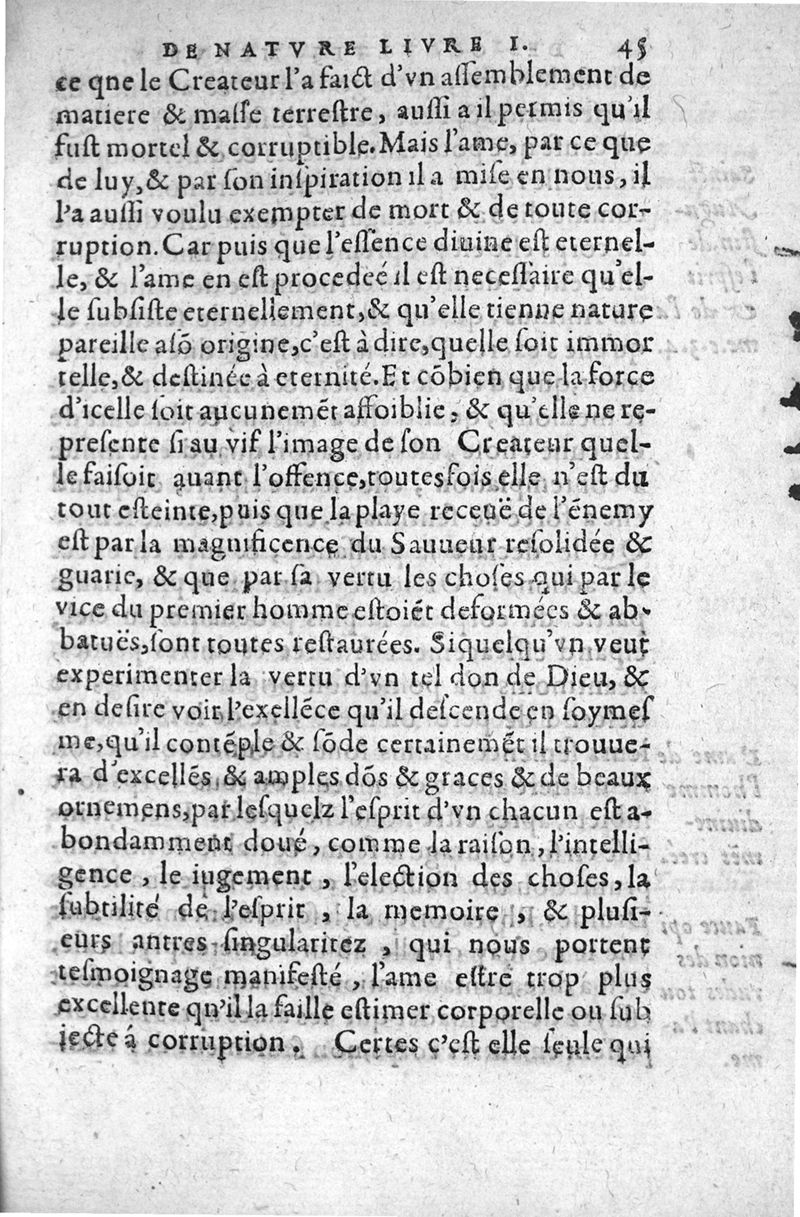 DE NATVRE LIVRE I. 45
ce qne le Createur l'a faict d'vn aſſemblement de
matiere & maſſe terreſtre, auſſi a il permis qu'il
fuſt mortel & corruptible. Mais l'ame, par ce que
de luy, & par ſon inſpiration il a miſe en nous, il
l'a auſſi voulu exempter de mort & de toute cor-
ruption. Car puis que l'eſſence diuine eſt eternel-
le, & l'ame en eſt procedeé il eſt neceſſaire qu'el-
le ſubſiſte eternellement, & qu'elle tienne nature
pareille a ſō origine, c'eſt à dire, quelle ſoit immor
telle, & deſtinée à eternité. Et cōbien que la force
d'icelle ſoit aucunemēt affoiblie, & qu'elle ne re-
preſente ſi au vif l'image de ſon Createur quel-
le faiſoit auant l'offence, toutesfois elle n'eſt du
tout eſteinte, puis que la playe receuë de l'énemy
eſt par la magnificence du Sauueur reſolidée &
guarie, & que par ſa vertu les choſes qui par le
vice du premier homme eſtoiét deformées & ab-
batuës, ſont toutes reſtaurées. Si quelqu'vn veut
experimenter la vertu d'vn tel don de Dieu, &
en deſire voir l'exelléce qu'il deſcende en ſoymeſ
me, qu'il contéple & ſōde certainemēt il trouue-
ra d'excellés & amples dōs & graces & de beaux
ornemens, par leſquelz l'eſprit d'vn chacun eſt a-
bondamment doué, comme la raiſon, l'intelli-
gence, le iugement, l'election des choſes, la
ſubtilité de l'eſprit, la memoire, & pluſi-
eurs antres ſingularitez, qui nous portent
teſmoignage manifeſté, l'ame eſtre trop plus
excellente qu'il la faille eſtimer corporelle ou ſub
iecte á corruption. Certes c'eſt elle ſeule qui